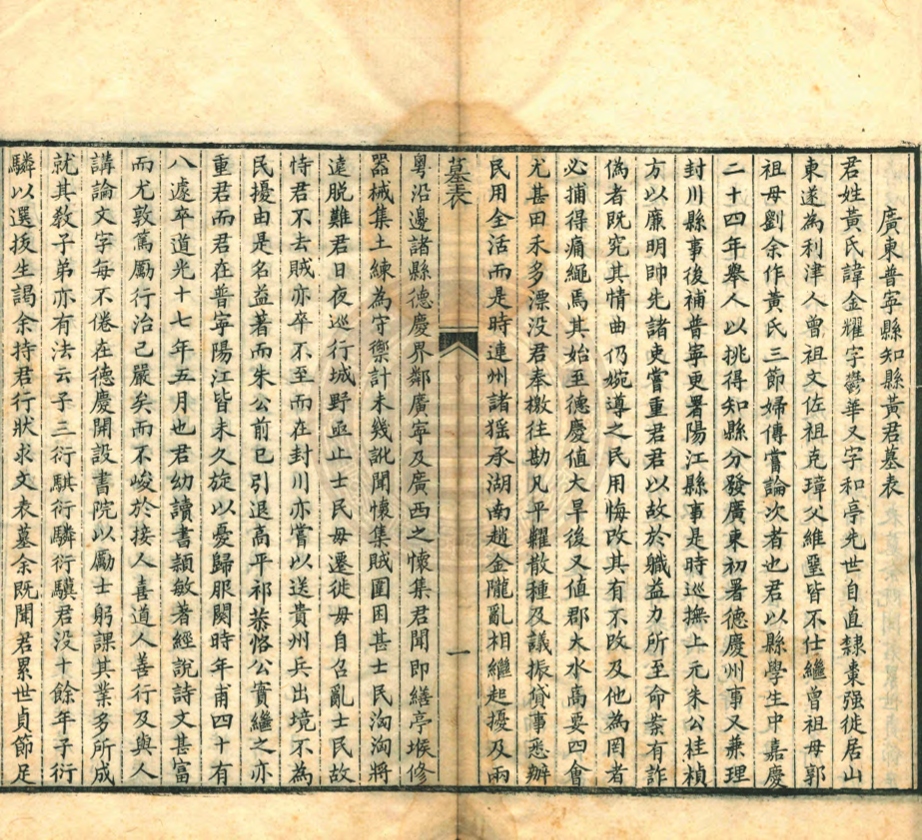 廣東普寧縣知縣黃君墓表
君姓黃氏諱金耀字鬱華又字和亭先世自直隸棗强徙居山
東遂為利津人曾祖文佐祖克璋父維壐皆不仕繼曾祖母郭
祖母劉余作黃氏三節婦傳嘗論次者也君以縣學生中嘉慶
二十四年舉人以挑得知縣分發廣東初署德慶州事又兼理
封川縣事後補普寧更署陽江縣事是時巡撫上元朱公桂楨
方以廉明帥先諸吏嘗重君君以故於職益力所至命案有詐
偽者既究其情曲仍婉導之民用悔改其有不改及他為罔者
必捕得痛繩焉其始至德慶值大旱後又值郡大水高要四會
尤甚田禾多漂没君奉檄往勘凡平糶散種及議振貸事悉辦
民用全活而是時連州諸猺承湖南趙金隴亂相繼起擾及兩
墓表
一
粤沿邊諸縣德慶界鄰廣寧及廣西之懷集君聞即繕亭堠修
器械集土練為守禦計未幾訛聞懷集賊圍困甚士民洶洶將
遠脫難君日夜巡行城野亟止士民毋遷徙毋自召亂士民故
恃君不去賊亦卒不至而在封川亦嘗以送貴州兵出境不為
民擾由是名益著而朱公前已引退高平祁恭恪公實繼之亦
重君而君在普寧陽江皆未久旋以憂歸服闋時年甫四十有
八遽卒道光十七年五月也君幼讀書穎敏著經說詩文甚富
而尤敦篤厲行治己嚴矣而不峻於接人喜道人善行及與人
講論文字每不倦在德慶開設書院以勵士躬課其業多所成
就其教子弟亦有法云子三衍騏衍驎衍驥君没十餘年子衍
驎以選拔生謁余持君行狀求文表墓余既聞君累世貞節足